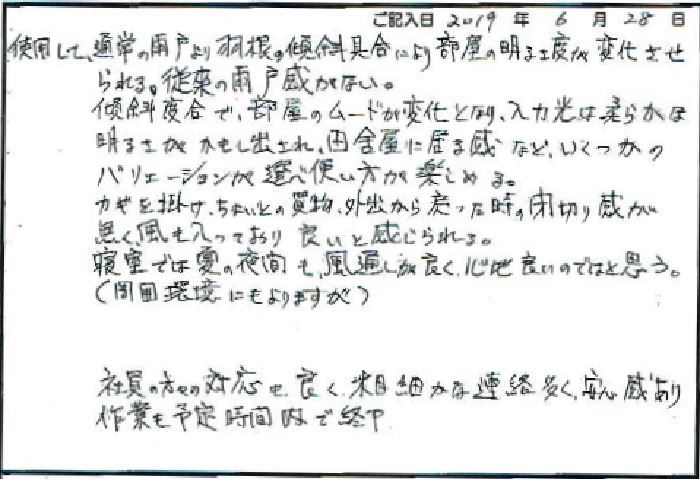 ご記入日 2019 年 6 月 28 日
使用して、通常の雨戸より羽根の傾斜具合により部屋の明るさ度が変化させ
られる。従来の雨戸感がない。
傾斜度合で、部屋のムードが変化となり、入力光は柔らかな
明るさがかもし出され、田舎屋に居る感など、いくつかの
バリエーションが選べ使い方が楽しめる。
カギを掛け、ちょいとの買物、外出から戻った時の閉切り感が
無く、風も入っており良いと感じられる。
寝室では夏の夜間も、風通しが良く、心地良いのではと思う。
(周囲環境にもよりますが)
社員の方々の対応も良く、木目細かな連絡多く、安心感あり
作業も予定時間内で終了